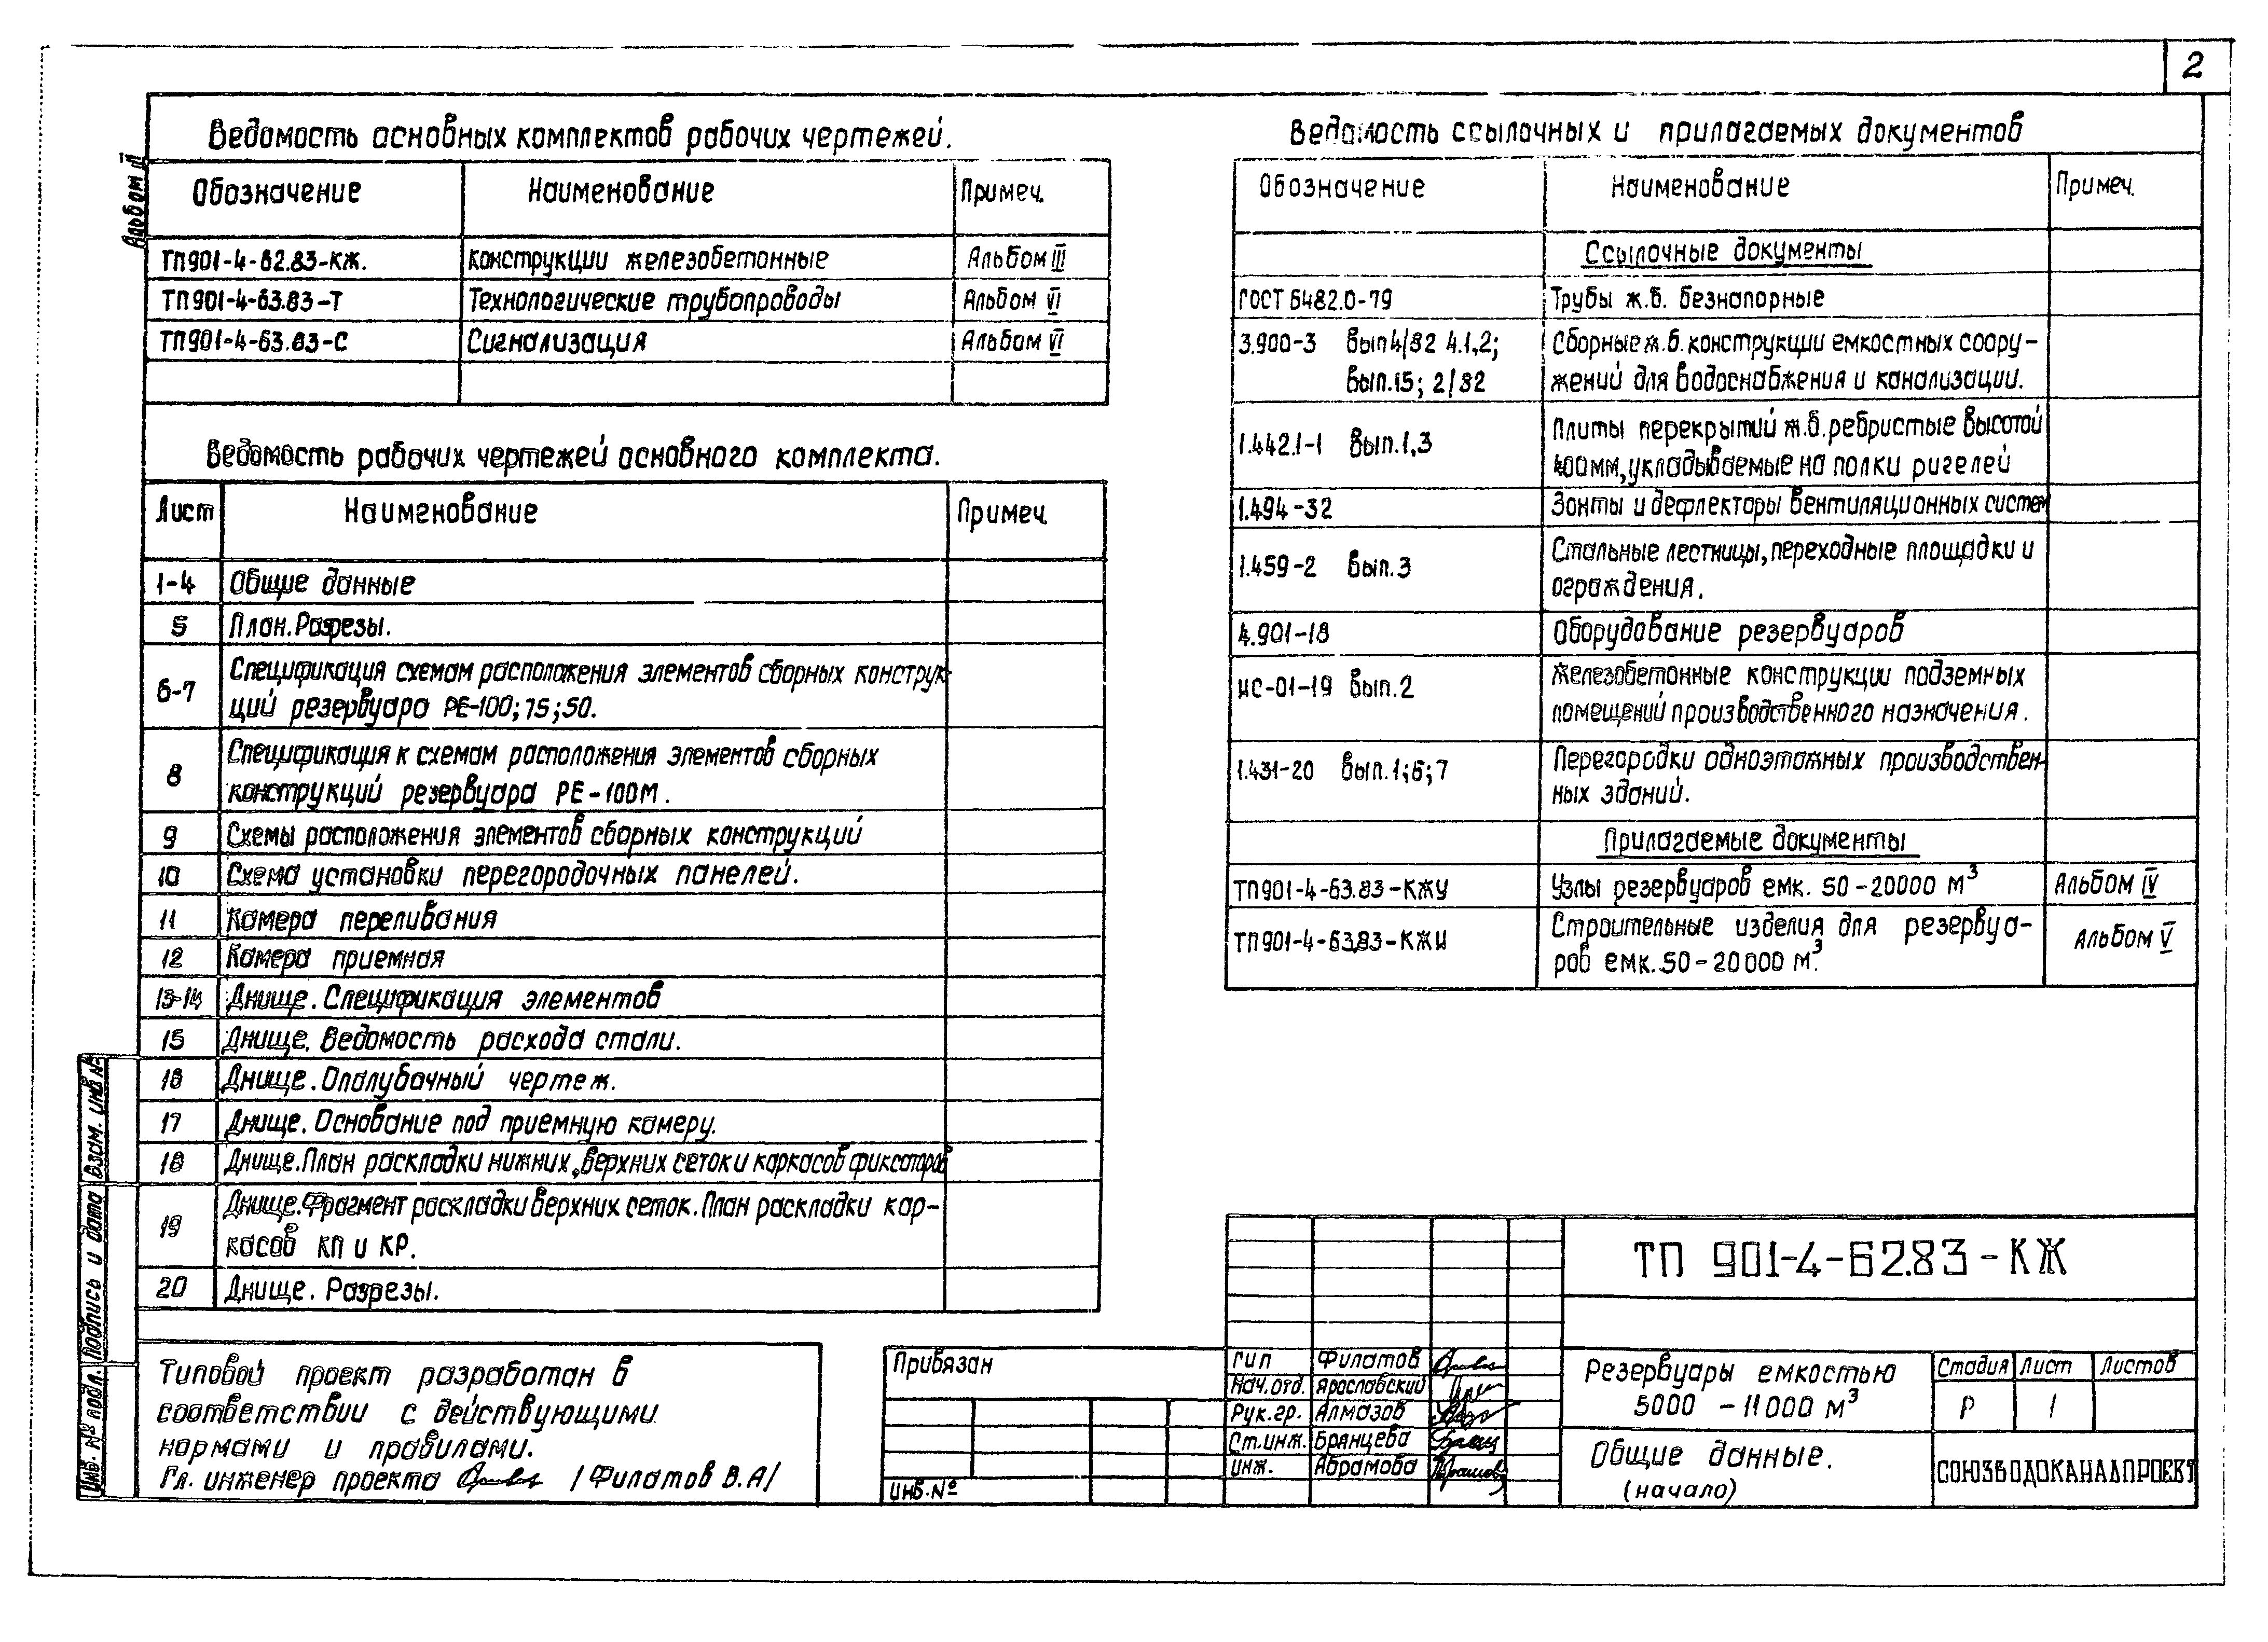 2
Альбом III
Ведомость основных комплектов рабочих чертежей.
Обозначение Наименование Примеч.
ТП901-4-62.83-КЖ. Конструкции железобетонные Альбом III
ТП901-4-63.83-Т Технологические трубопроводы Альбом VI
ТП901-4-63.83-С Сигнализация Альбом VI
Ведомость рабочих чертежей основного комплекта.
Лист Наименование Примеч.
1-4 Общие данные
5 План. Разрезы.
6-7 Спецификация схемам расположения элементов сборных конструк-
ций резервуара РЕ-100; 75; 50.
8 Спецификация к схемам расположения элементов сборных
конструкций резервуара РЕ-100М.
9 Схемы расположения элементов сборных конструкций
10 Схема установки перегородочных панелей.
11 Камера переливания
12 Камера приемная
13-14 Днище. Спецификация элементов
15 Днище. Ведомость расхода стали.
16 Днище. Опалубочный чертеж.
17 Днище. Основание под приемную камеру.
18 Днище. План раскладки нижних, верхних сеток и каркасов фиксаторов
19 Днище. Фрагмент раскладки верхних сеток. План раскладки кар-
касов КП и КР.
20 Днище. Разрезы.
Ведомость ссылочных и прилагаемых документов
Обозначение Наименование Примеч.
Ссылочные документы
ГОСТ 6482.0-79 Трубы ж.б. безнапорные
3.900-3 вып 4/82 ч.1,2; Сборные ж.б. конструкции емкостных соору-
вып.15; 2/82 жений для водоснабжения и канализации.
1.442.1-1 вып.1,3 Плиты перекрытий ж.б. ребристые высотой
400мм, укладываемые на полки ригелей
1.494-32 Зонты и дефлекторы вентиляционных систем
1.459-2 вып.3 Стальные лестницы, переходные площадки и
ограждения.
4.901-18 Оборудование резервуаров
ИС-01-19 вып.2 Железобетонные конструкции подземных
помещений производственного назначения.
1.431-20 вып.1;6;7 Перегородки одноэтажных производствен-
ных зданий.
Прилагаемые документы
ТП901-4-63.83-КЖУ Узлы резервуаров емк. 50-20000 м³ Альбом IV
ТП901-4-63.83-КЖИ Строительные изделия для резервуа-
ров емк. 50-20000 м³. Альбом V
Инв. № подл. Подпись и дата Взам. инв №
Типовой проект разработан в
соответствии с действующими
нормами и правилами.
Гл. инженер проекта /Филатов В.А/
Привязан
Инв. №
ГИП Филатов
Нач. отд. Ярославский
Рук. гр. Алмазов
Ст. инж. Брянцева
Инж. Абрамова
ТП 901-4-62.83-КЖ
Резервуары емкостью
5000 - 11000 м³
Стадия Лист Листов
Р 1
Общие данные.
(начало)
СОЮЗВОДОКАНАЛПРОЕКТ